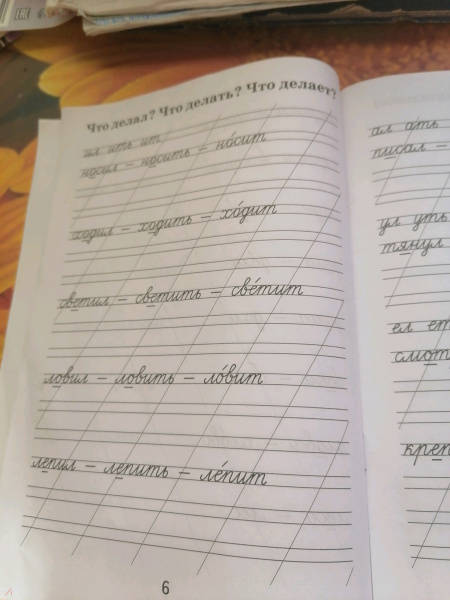 Что делал? Что делать? Что делает?
ил ить ит
носил – носить – но́сит
ходил – ходить – хо́дит
светил – светить – све́тит
ловил – ловить – ло́вит
лепил – лепить – ле́пит
6
ал ать
писал –
ул уть
тянул
ел